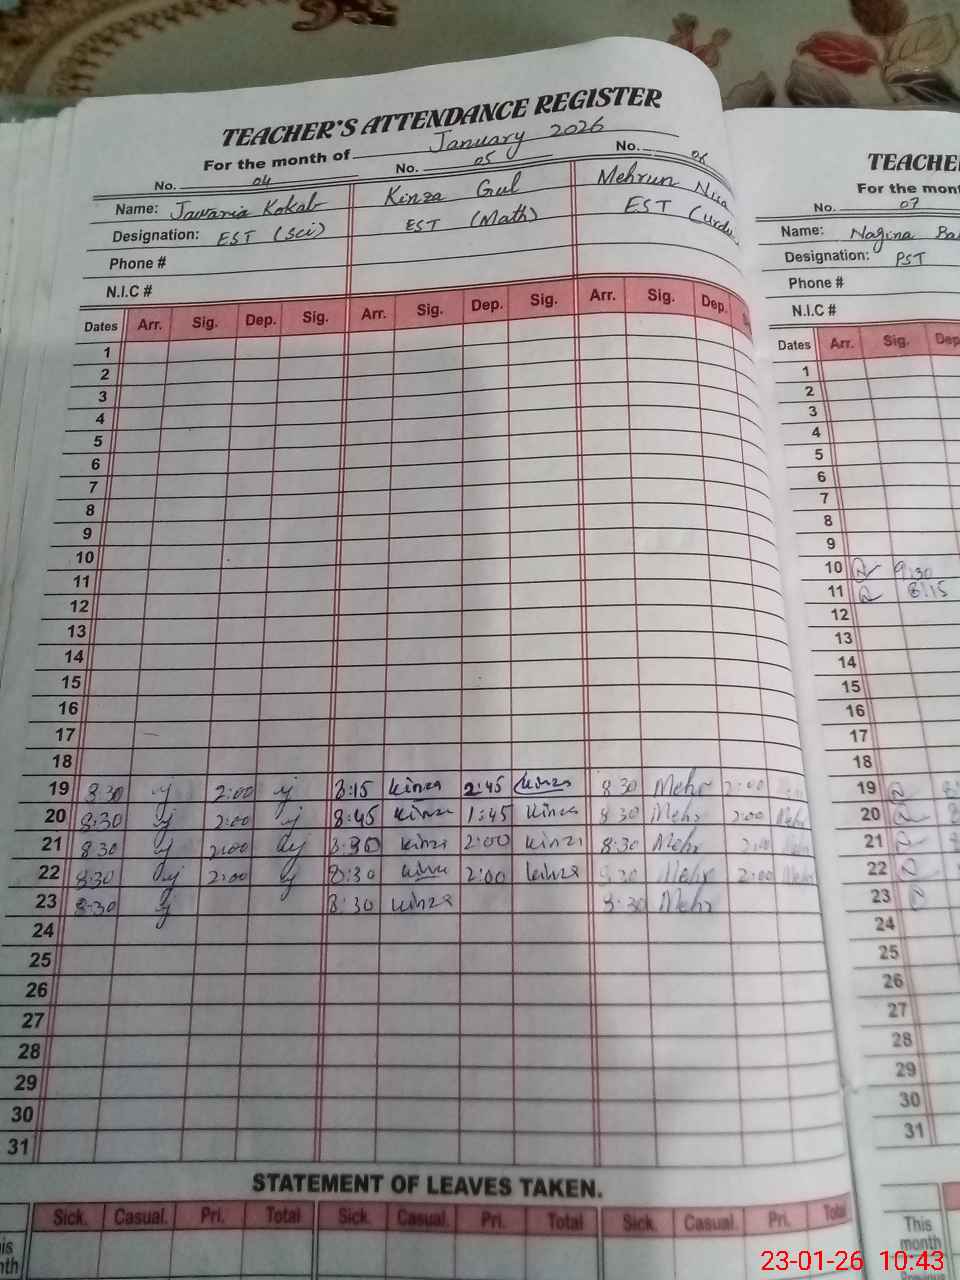 TEACHER'S ATTENDANCE REGISTER
For the month of January 2026
No. 04 No. 05 No. 06
Name: Jawaria Kokab Kinza Gul Mehrun Nisa
Designation: EST (Sci) EST (Math) EST (Urdu
Phone #
N.I.C #
Dates Arr. Sig. Dep. Sig. Arr. Sig. Dep. Sig. Arr. Sig. Dep.
1
2
3
4
5
6
7
8
9
10
11
12
13
14
15
16
17
18
19 8:30 2:00 8:15 Kinza 2:45 Kinza 8:30 Mehr 2:00
20 8:30 2:00 8:45 Kinza 1:45 Kinza 8:30 Mehr 2:00 Mehr
21 8:30 2:00 8:30 Kinza 2:00 Kinza 8:30 Mehr 2:00 Mehr
22 8:30 2:00 8:30 Kinza 2:00 Kinza 8:30 Mehr 2:00 Mehr
23 8:30 8:30 Kinza 8:30 Mehr
24
25
26
27
28
29
30
31
STATEMENT OF LEAVES TAKEN.
Sick. Casual. Pri. Total Sick. Casual. Pri. Total Sick. Casual. Pri. Total
TEACHE
For the mon
No. 07
Name: Nagina
Designation: PST
Phone #
N.I.C #
Dates Arr. Sig. Dep
1
2
3
4
5
6
7
8
9
10 9:30
11 8:15
12
13
14
15
16
17
18
19
20
21
22
23
24
25
26
27
28
29
30
31
This
month
23-01-26 10:43